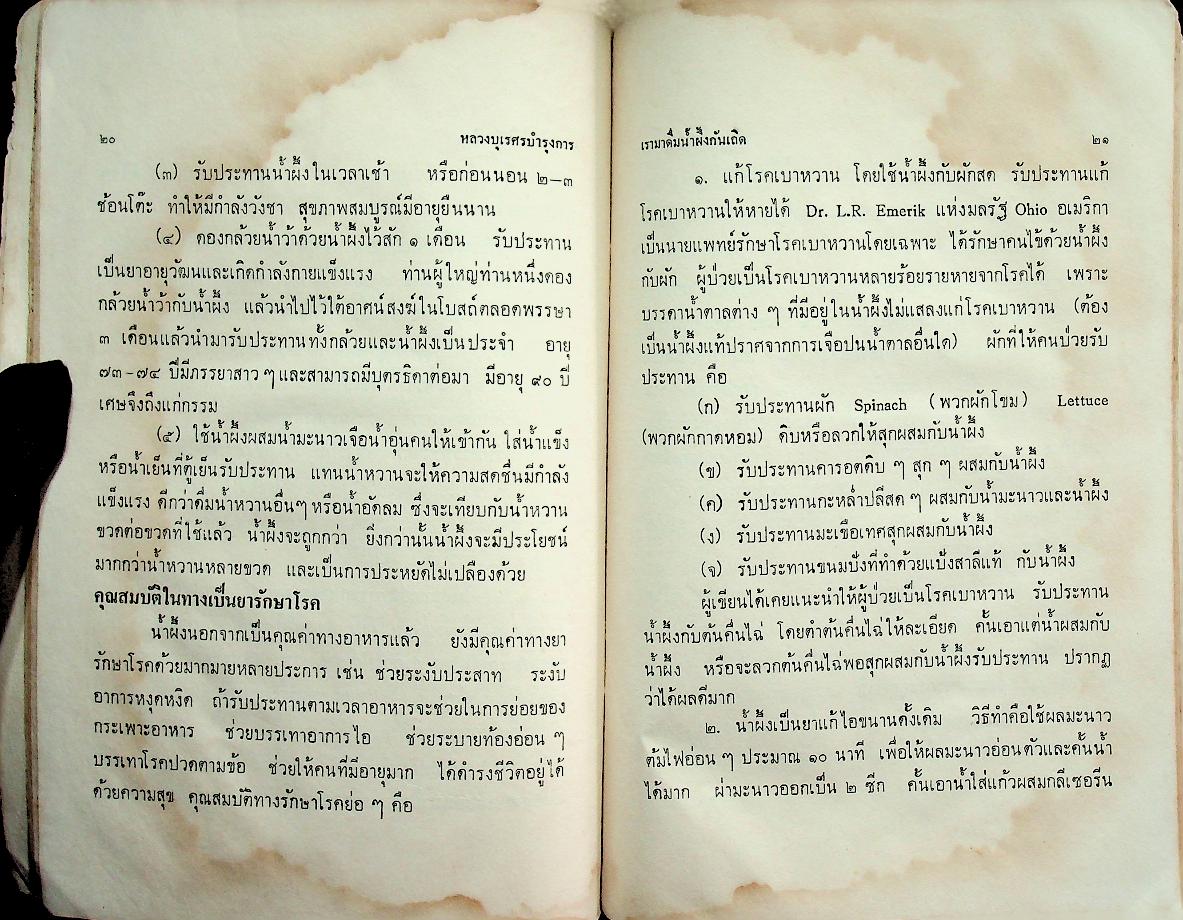 ๒๐ หลวงบุเรศรบำรุงการ
(๓) รับประทานน้ำผึ้งในเวลาเช้า หรือก่อนนอน ๒–๓
ช้อนโต๊ะ ทำให้มีกำลังวังชา สุขภาพสมบูรณ์มีอายุยืนนาน
(๔) ดองกล้วยน้ำว้าด้วยน้ำผึ้งไว้สัก ๑ เดือน รับประทาน
เป็นยาอายุวัฒนและเกิดกำลังกายแข็งแรง ท่านผู้ใหญ่ท่านหนึ่งดอง
กล้วยน้ำว้ากับน้ำผึ้ง แล้วนำไปไว้ใต้อาศน์สงฆ์ในโบสถ์ตลอดพรรษา
๓ เดือนแล้วนำมารับประทานทั้งกล้วยและน้ำผึ้งเป็นประจำ อายุ
๗๓–๗๔ ปีมีภรรยาสาว ๆ และสามารถมีบุตรธิดาต่อมา มีอายุ ๙๐ ปี
เศษจึงถึงแก่กรรม
(๕) ใช้น้ำผึ้งผสมน้ำมะนาวเจือน้ำอุ่นคนให้เข้ากัน ใส่น้ำแข็ง
หรือน้ำเย็นที่ตู้เย็นรับประทาน แทนน้ำหวานจะให้ความสดชื่นมีกำลัง
แข็งแรง ดีกว่าดื่มน้ำหวานอื่นๆ หรือน้ำอัดลม ซึ่งจะเทียบกับน้ำหวาน
ขวดต่อขวดที่ใช้แล้ว น้ำผึ้งจะถูกกว่า ยิ่งกว่านั้นน้ำผึ้งจะมีประโยชน์
มากกว่าน้ำหวานหลายขวด และเป็นการประหยัดไม่เปลืองด้วย
คุณสมบัติในทางเป็นยารักษาโรค
น้ำผึ้งนอกจากเป็นคุณค่าทางอาหารแล้ว ยังมีคุณค่าทางยา
รักษาโรคด้วยมากมายหลายประการ เช่น ช่วยระงับประสาท ระงับ
อาการหงุดหงิด ถ้ารับประทานตามเวลาอาหารจะช่วยในการย่อยของ
กระเพาะอาหาร ช่วยบรรเทาอาการไอ ช่วยระบายท้องอ่อน ๆ
บรรเทาโรคปวดตามข้อ ช่วยให้คนที่มีอายุมาก ได้ดำรงชีวิตอยู่ได้
ด้วยความสุข คุณสมบัติทางรักษาโรคย่อ ๆ คือ
เรามาดื่มน้ำผึ้งกันเถิด ๒๑
๑. แก้โรคเบาหวาน โดยใช้น้ำผึ้งกับผักสด รับประทานแก้
โรคเบาหวานให้หายได้ Dr. L.R. Emerik แห่งมลรัฐ Ohio อเมริกา
เป็นนายแพทย์รักษาโรคเบาหวานโดยเฉพาะ ได้รักษาคนไข้ด้วยน้ำผึ้ง
กับผัก ผู้ป่วยเป็นโรคเบาหวานหลายร้อยรายหายจากโรคได้ เพราะ
บรรดาน้ำตาลต่าง ๆ ที่มีอยู่ในน้ำผึ้งไม่แสลงแก่โรคเบาหวาน (ต้อง
เป็นน้ำผึ้งแท้ปราศจากการเจือปนน้ำตาลอื่นใด) ผักที่ให้คนป่วยรับ
ประทาน คือ
(ก) รับประทานผัก Spinach (พวกผักโขม) Lettuce
(พวกผักกาดหอม) ดิบหรือลวกให้สุกผสมกับน้ำผึ้ง
(ข) รับประทานคารอตดิบ ๆ สุก ๆ ผสมกับน้ำผึ้ง
(ค) รับประทานกะหล่ำปลีสด ๆ ผสมกับน้ำมะนาวและน้ำผึ้ง
(ง) รับประทานมะเขือเทศสุกผสมกับน้ำผึ้ง
(จ) รับประทานขนมปังที่ทำด้วยแป้งสาลีแท้ กับน้ำผึ้ง
ผู้เขียนได้เคยแนะนำให้ผู้ป่วยเป็นโรคเบาหวาน รับประทาน
น้ำผึ้งกับต้นคื่นไฉ่ โดยตำต้นคื่นไฉ่ให้ละเอียด คั้นเอาแต่น้ำผสมกับ
น้ำผึ้ง หรือจะลวกต้นคื่นไฉ่พอสุกผสมกับน้ำผึ้งรับประทาน ปรากฏ
ว่าได้ผลดีมาก
๒. น้ำผึ้งเป็นยาแก้ไอขนานดั้งเดิม วิธีทำคือใช้ผลมะนาว
ต้มไฟอ่อน ๆ ประมาณ ๑๐ นาที เพื่อให้ผลมะนาวอ่อนตัวและคั้นน้ำ
ได้มาก ผ่ามะนาวออกเป็น ๒ ซีก คั้นเอาน้ำใส่แก้วผสมกลีเซอรีน